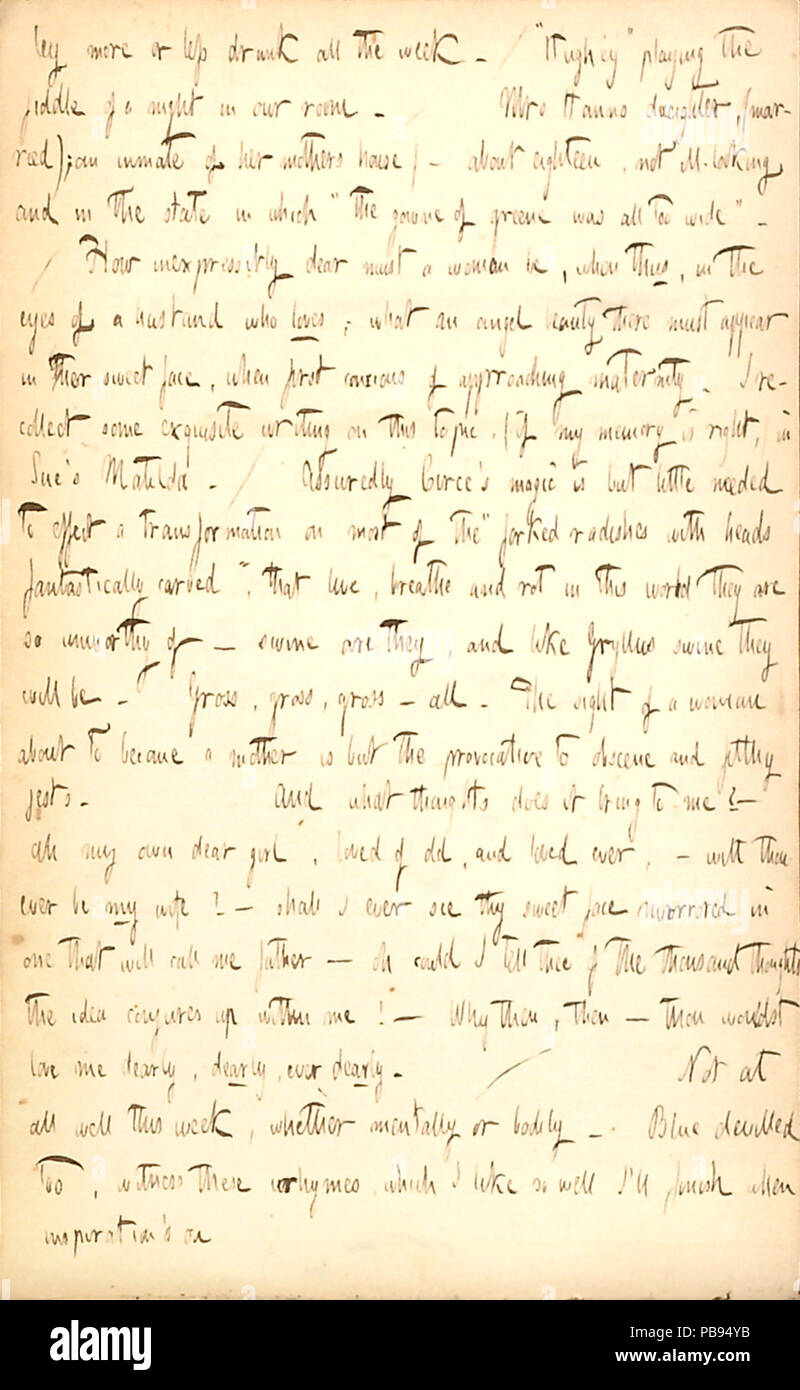 ley more or less drunk all the week — / "Hughey" playing the
fiddle of a night in our room — / Mrs Hanns daughter, (mar-
ried); an inmate of her mothers house / — about eighteen, not ill-looking,
and in the state in which "the gowne of greene was all too wide" —
/ How inexpressibly dear must a woman be, when thus, in the
eyes of a husband who loves; what an angel beauty there must appear
in her sweet face, when first conscious of approaching maternity. I re-
collect some exquisite writing on this topic, (if my memory is right, in
Sue's Matilda — / Assuredly Circe's magic is but little needed
to effect a transformation on most of the "forked radishes with heads
fantastically carved", that live, breathe and rot in this world they are
so unworthy of — swine are they, and like Gryllus swine they
will be — Gross, gross, gross — all — The sight of a woman
about to become a mother is but the provocative to obscene and filthy
jests — And what thoughts does it bring to me? —
Oh my own dear girl, loved of old, and loved ever, — wilt thou
ever be my wife? — shall I ever see thy sweet face mirrored in
one that will call me father — oh could I tell thee of the thousand thoughts
the idea conjures up within me! — Why then, then — thou wouldst
love me dearly, dearly, ever dearly — / Not at
all well this week, whether mentally or bodily — Blue devilled
too, witness these rhymes which I like so well I'll finish when
inspiration's on
alamy
Image ID: PB94YB
www.alamy.com